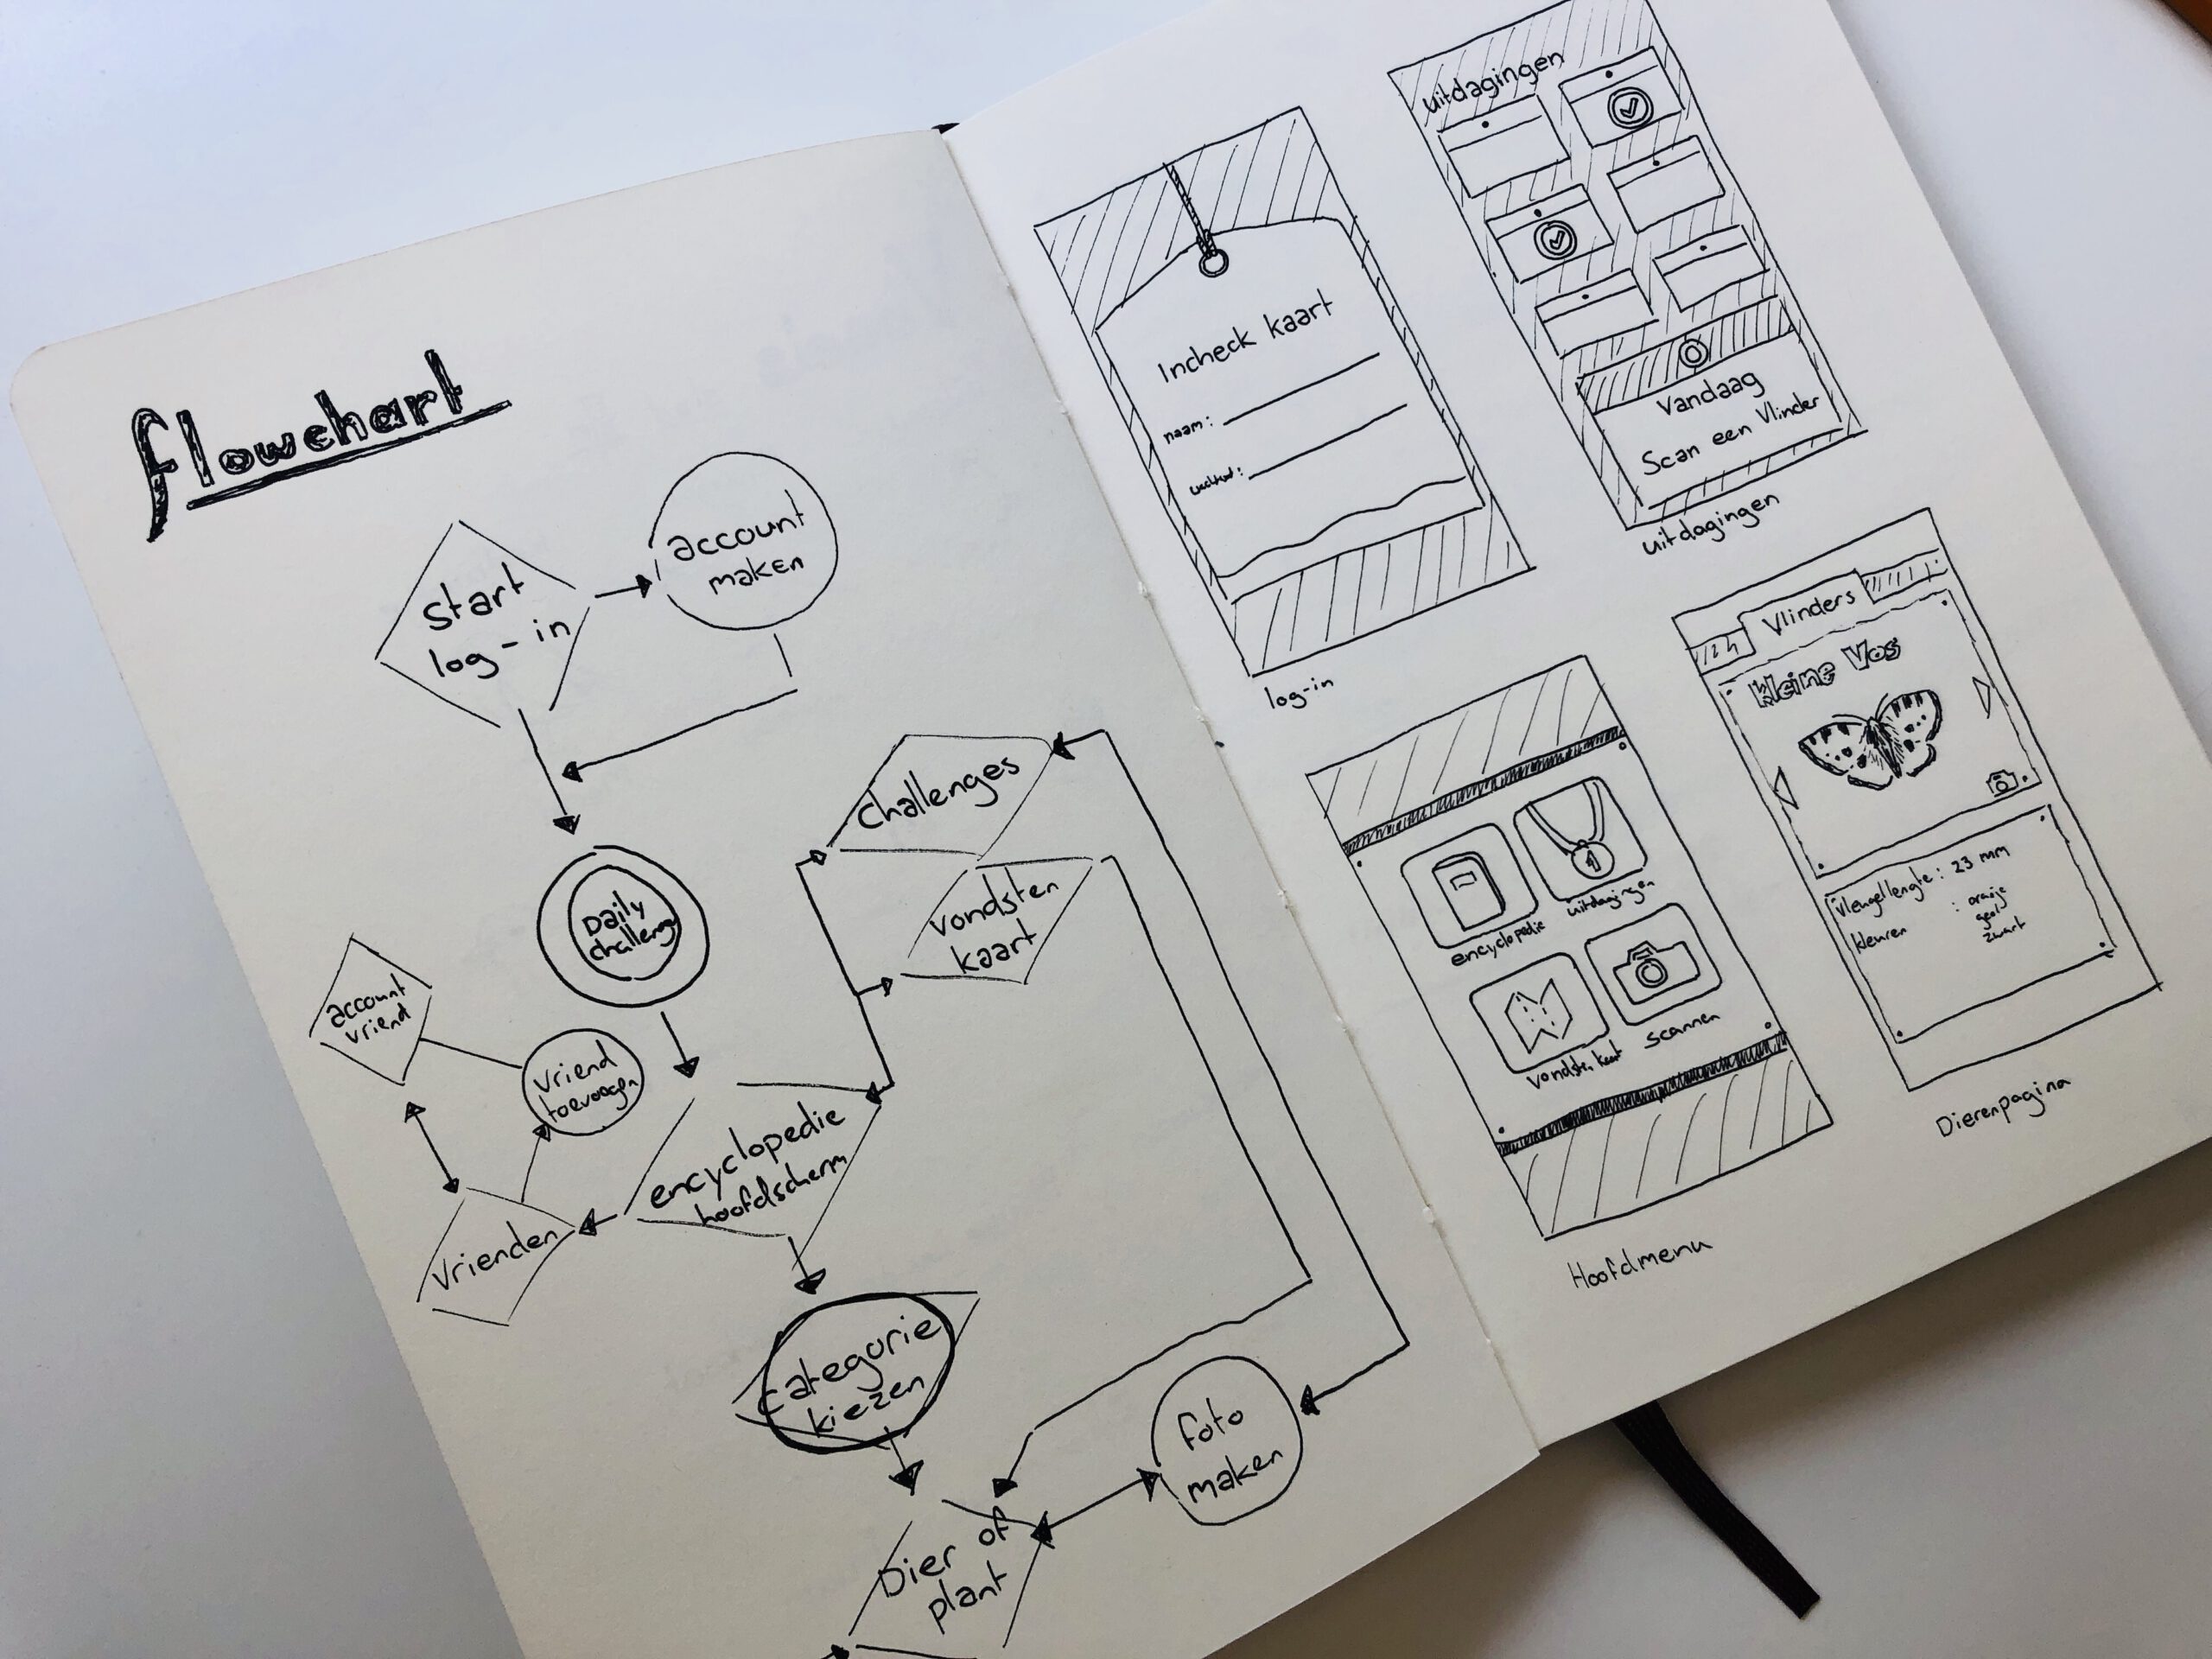 flowchart
start
log-in
account
maken
Daily
challenge
challenges
vondsten
kaart
account
vriend
vriend
toevoegen
encyclopedie
hoofdscherm
vrienden
categorie
kiezen
foto
maken
Dier of
plant
Incheck kaart
naam:
log-in
uitdagingen
Vandaag
Scan een Vlinder
uitdagingen
encyclopedie
uitdagingen
vondsten kaart
scannen
Hoofdmenu
Vlinders
Kleine Vos
Vleugellengte: 23 mm
kleuren : oranje
geel
zwart
Dierenpagina